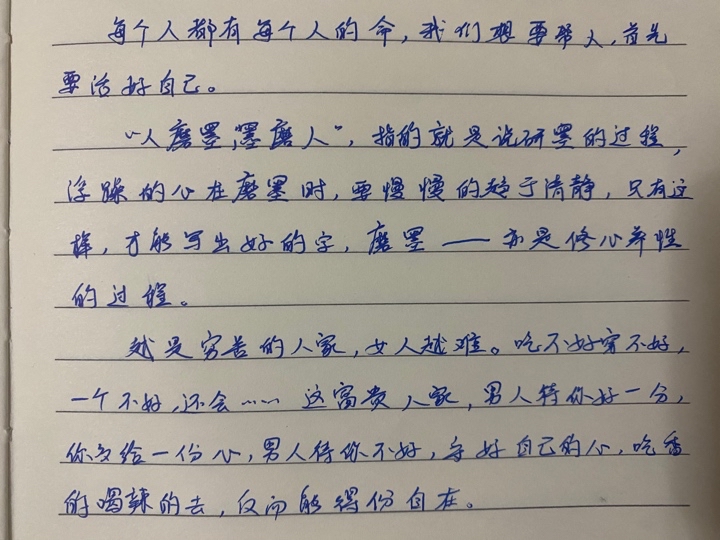 每个人都有每个人的命，我们想要帮人，首先
要活好自己。
“人磨墨，墨磨人”，指的就是说研墨的过程，
浮躁的心在磨墨时，要慢慢的趋于清静，只有这
样，才能写出好的字，磨墨——亦是修心养性
的过程。
越是穷苦的人家，女人越难。吃不好穿不好，
一个不好，还会…… 这富贵人家，男人待你好一分，
你交给一份心，男人待你不好，守好自己的心，吃香
的喝辣的去，反而能得份自在。